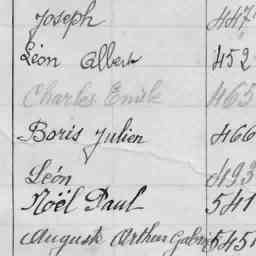 Joseph 447
Léon Albert 452
Charles Emile 465
Boris Julien 466
Léon 493
Noël Paul 541
Auguste Arthur Gabriel 545